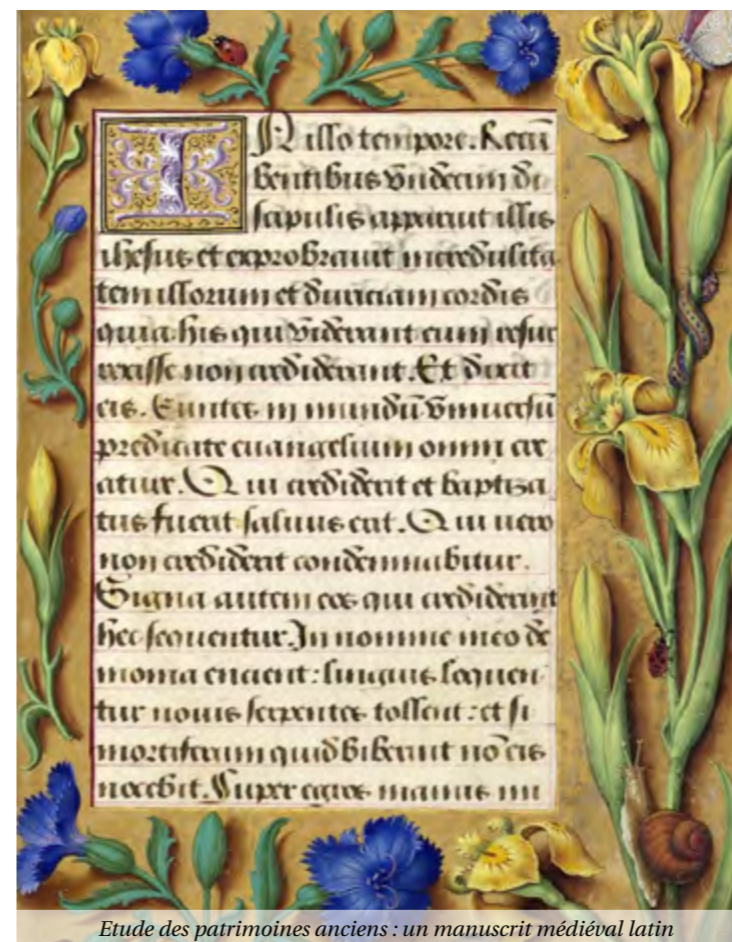 IN illo tempore. Recū
bentibus vndecim di
scipulis apparuit illis
ihesus et exprobrauit incredulita
tem illorum et duriciam cordis
quia his qui viderant eum resur
rexisse non crediderant. Et dixit
eis. Euntes in mundū vniuersū
predicate euangelium omni cre
ature. Qui crediderit et baptiza
tus fuerit saluus erit. Qui uero
non crediderit condemnabitur.
Signa autem eos qui crediderint
hec sequentur. In nomine meo de
monia eiicient: linguis loquen
tur nouis serpentes tollent: et si
mortiferum quid biberint nō eis
nocebit. Super egros manus im
Etude des patrimoines anciens : un manuscrit médiéval latin